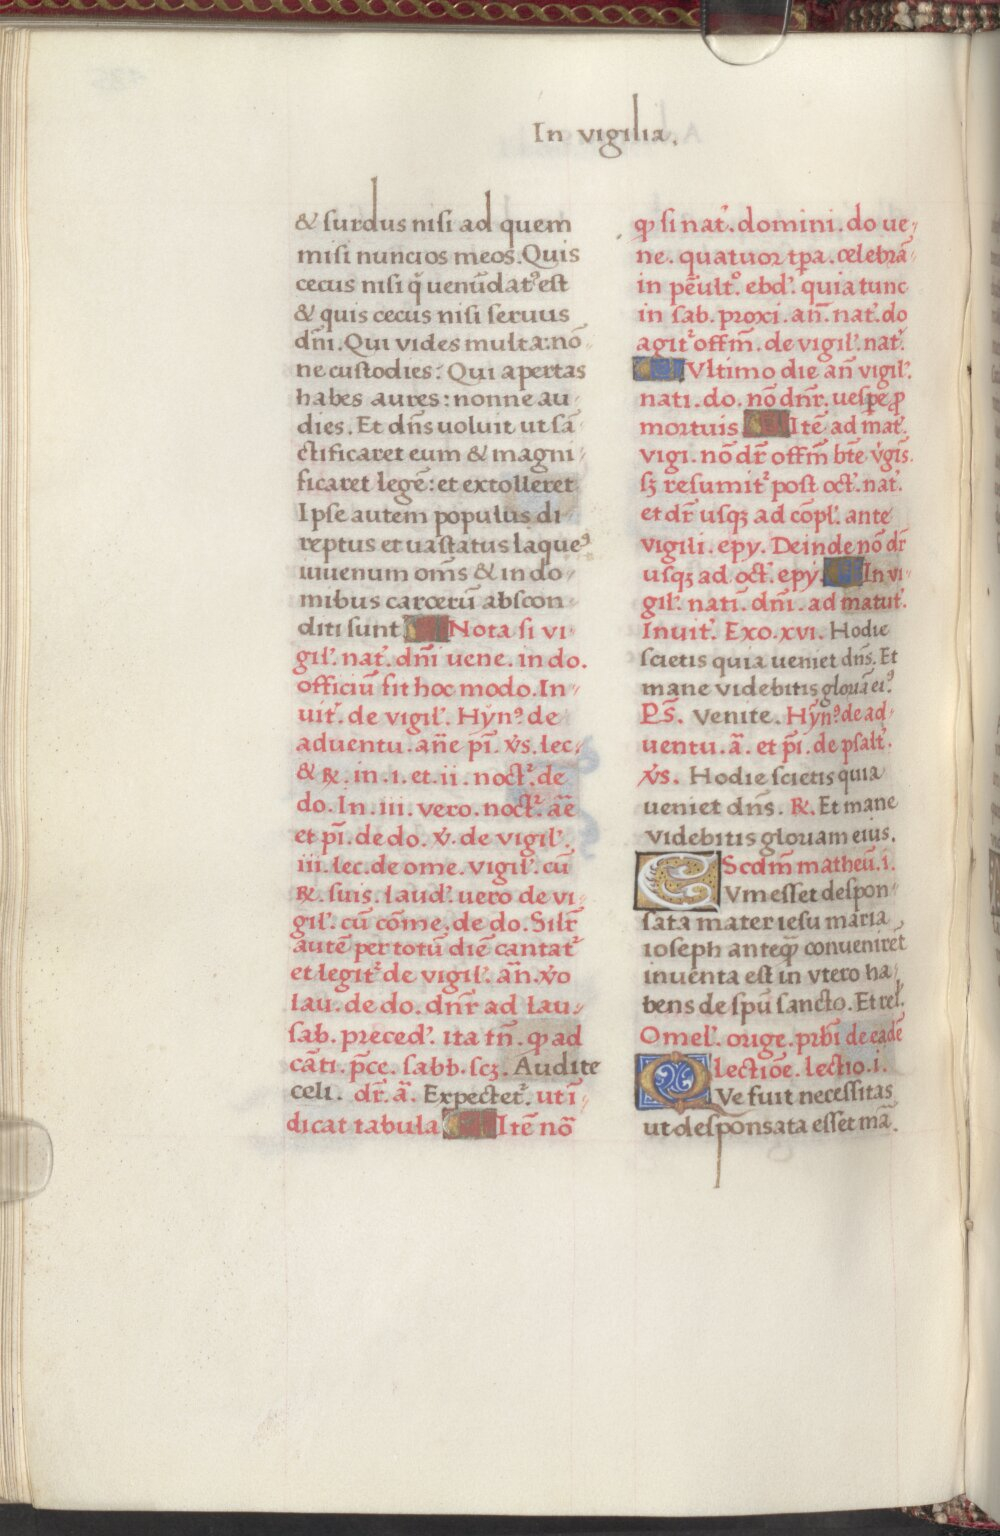 In vigilia.
& surdus nisi ad quem
misi nuncios meos. Quis
cecus nisi q̄ venūdat᾽ est
& quis cecus nisi seruus
dn̄i. Qui vides multa: nō-
ne custodies: Qui apertas
habes aures: nonne au-
dies. Et dn̄s voluit ut sā-
ctificaret eum & magni-
ficaret legē: et extolleret
Ipse autem populus di-
reptus et uastatus laqueꝰ
iuuenum om̄s & in do-
mibus carcerū abscon-
diti sunt Nota si vi-
gil̕. nat̕. dn̄i uene. in do.
officiū fit hoc modo. In-
uit̕. de vigil̕. Hyn̄ꝰ de
aduentu. an̄e pī. v̄s. lec.
& ℟. in .i. et .ii. noct̕. de
do. In .iii. vero. noct̕. āe
et pī. de do. v̄. de vigil̕.
iii. lec. de ome. vigil̕. cū
℟. suis. laud̕. uero de vi-
gil̕. cū cōme. de do. Silr̄
autē per totū diē cantat᾽
et legit᾽ de vigil̕. an̄. v̄o
lau. de do. dn̄r ad lau-
sab. preced̕. ita tn̄. ꝙ ad
cāti. p̄ce. sabb. scꝫ. Audite
celi. dr̄. ā. Expectet᾽. ut ī-
dicat tabula Itē nō
ꝙ si nat̕. domini. do ue-
ne. quatuor tp̄a. celebrā-
in pēult̕ᵒ. ebd̕. quia tunc
in sab. proxi. an̄. nat̕. do
agit᾽ offm̄. de vigil̕. nat̕.
Vltimo die an̄ vigil̕.
nati. do. nō dn̄r. uespe ꝓ
mortuis Itē ad mat̕.
vigi. nō dr̄ offm̄ bt̄e v̕gīs.
sꝫ resumit᾽ post oct̕. nat̕.
et dr̄ usqꝫ ad cōpl̕. ante
vigili. epy. Deinde nō dr̄
usqꝫ ad oct̕. epy. In vi-
gil̕. nati. dn̄i. ad matut̕.
Inuit̕. Exo. xvi. Hodie
scietis quia ueniet dn̄s. Et
mane videbitis gloriā eiꝰ.
Ps̄. Venite. Hyn̄ꝰ de ad-
uentu. ā. et pī. de psalt̕.
v̄s. Hodie scietis quia
ueniet dn̄s. ℟. Et mane
videbitis gloriam eius.
Scdm̄ matheū. i.
CVm esset despon-
sata mater iesu maria
ioseph anteꝙ̄ conuenirēt
inuenta est in vtero ha-
bens de spū sancto. Et rel̕.
Omel̕. orige. prb̄i de eadē
lectiōe. lectio. i.
QVe fuit necessitas
ut desponsata esset mā.